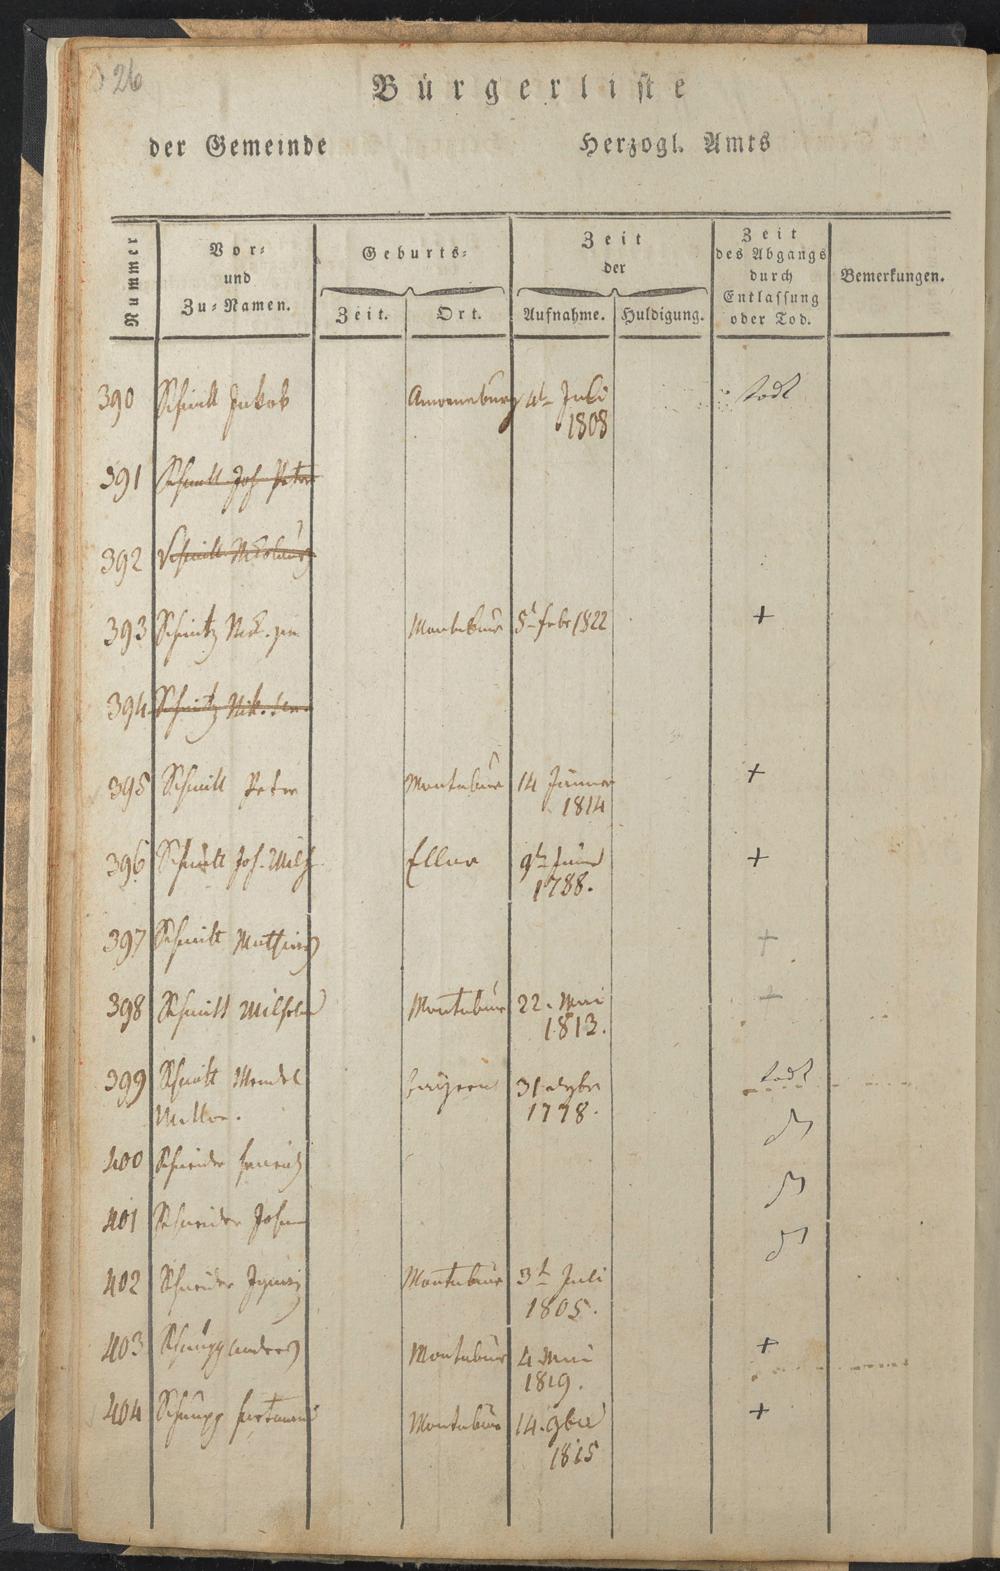 26
Bürgerliste
der Gemeinde Herzogl. Amts
Nummer
Vor- und Zu-Namen.
Geburts-
Zeit. Ort.
Zeit der
Aufnahme. Huldigung.
Zeit des Abgangs durch Entlassung oder Tod.
Bemerkungen.
390 Schmitt Jakob Amoeneburg 4t Juli todt
1808
391 Schmitt Joh Peter
392 Schmitt Nikolaus
393 Schmitz Nik. jun Montabaur 5t Febr 1822 +
394 Schmitz Nik. sen.
395 Schmitt Peter Montabaur 14 Jänner +
1814
396 Schmitt Joh. Wilh Ellar 9t Juni +
1788.
397 Schmitt Mathias +
398 Schmitt Wilhelm Montabaur 22. Mai +
1813.
399 Schmitt Wendel 31 todt
1778.
400 Schneider Henrich
401 Schneider Johann
402 Schneider Montabaur 3t Juli
1805.
403 Schnupp Andreas Montabaur 4 Mai +
1819.
404 Schnupp Hartmann Montabaur 14. 9ber +
1815